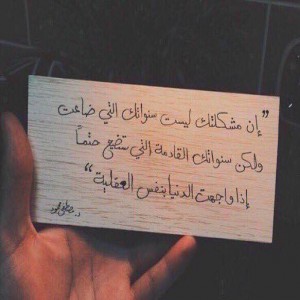 "إن مشكلتك ليست سنواتك التي ضاعت
ولكن سنواتك القادمة التي ستضيع حتماً
إذا واجهت الدنيا بنفس العقلية"
د. مصطفى محمود